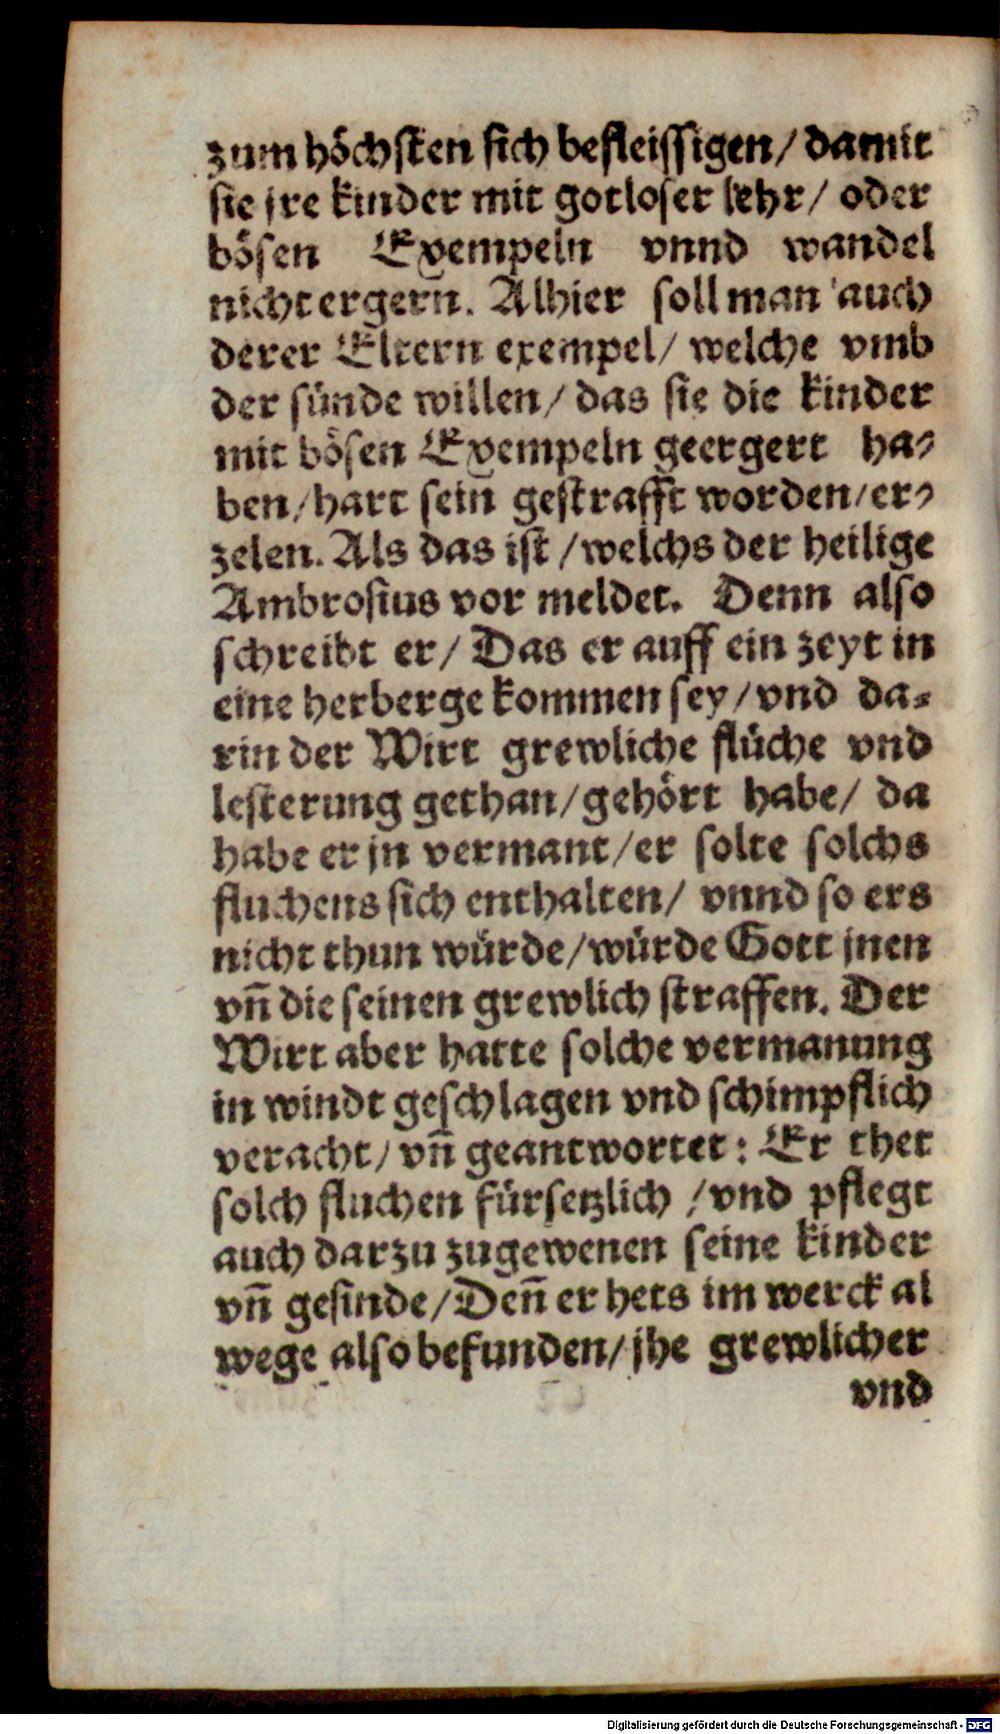 zum höchsten sich befleissigen/ damit
sie jre kinder mit gotloser lehr/ oder
bösen Exempeln vnnd wandel
nicht ergern̄. Alhier soll man auch
derer Eltern exempel/ welche vmb
der sünde willen/ das sie die kinder
mit bösen Exempeln geergert ha-
ben/ hart sein gestrafft worden/ er-
zelen. Als das ist/ welchs der heilige
Ambrosius vor meldet. Denn also
schreibt er/ Das er auff ein zeyt in
eine herberge kommen sey/ vnd da-
rin der Wirt grewliche flüche vnd
lesterung gethan/ gehört habe/ da
habe er jn vermant/ er solte solchs
fluchens sich enthalten/ vnnd so ers
nicht thun würde/ würde Gott jnen
vn̄ die seinen grewlich straffen. Der
Wirt aber hatte solche vermanung
in windt geschlagen vnd schimpflich
veracht/ vn̄ geantwortet: Er thet
solch fluchen fürsetzlich/ vnd pflegt
auch darzu zugewenen seine kinder
vn̄ gesinde/ Den̄ er hets im werck al
wege also befunden/ jhe grewlicher
vnd
Digitalisierung gefördert durch die Deutsche Forschungsgemeinschaft - DFG